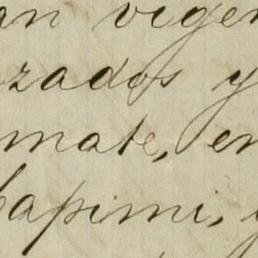 an vigen
zados y
mate, en
apimi, y